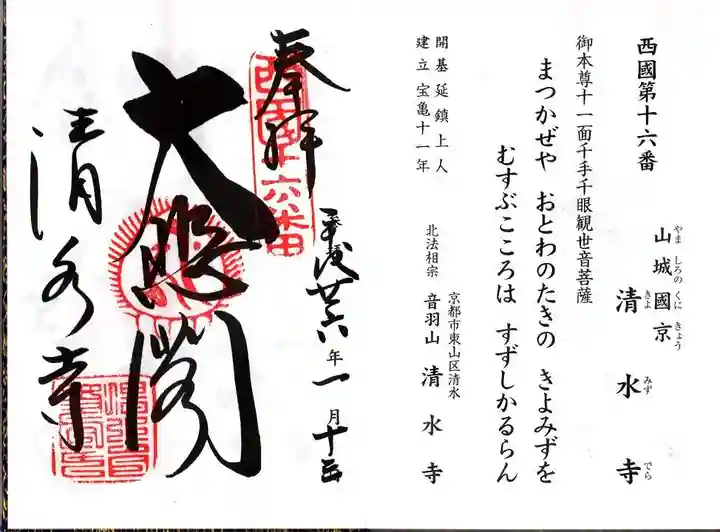 西國第十六番
山城國京
やましろのくにきょう
清水寺
きよみずでら
御本尊十一面千手千眼観世音菩薩
まつかぜや おとわのたきの きよみずを
むすぶこころは すずしかるらん
開基 延鎮上人
建立 宝亀十一年
京都市東山区清水
北法相宗 音羽山 清水寺
奉拝
西国十六番
平成廿六年一月十三
大悲閣
清水寺